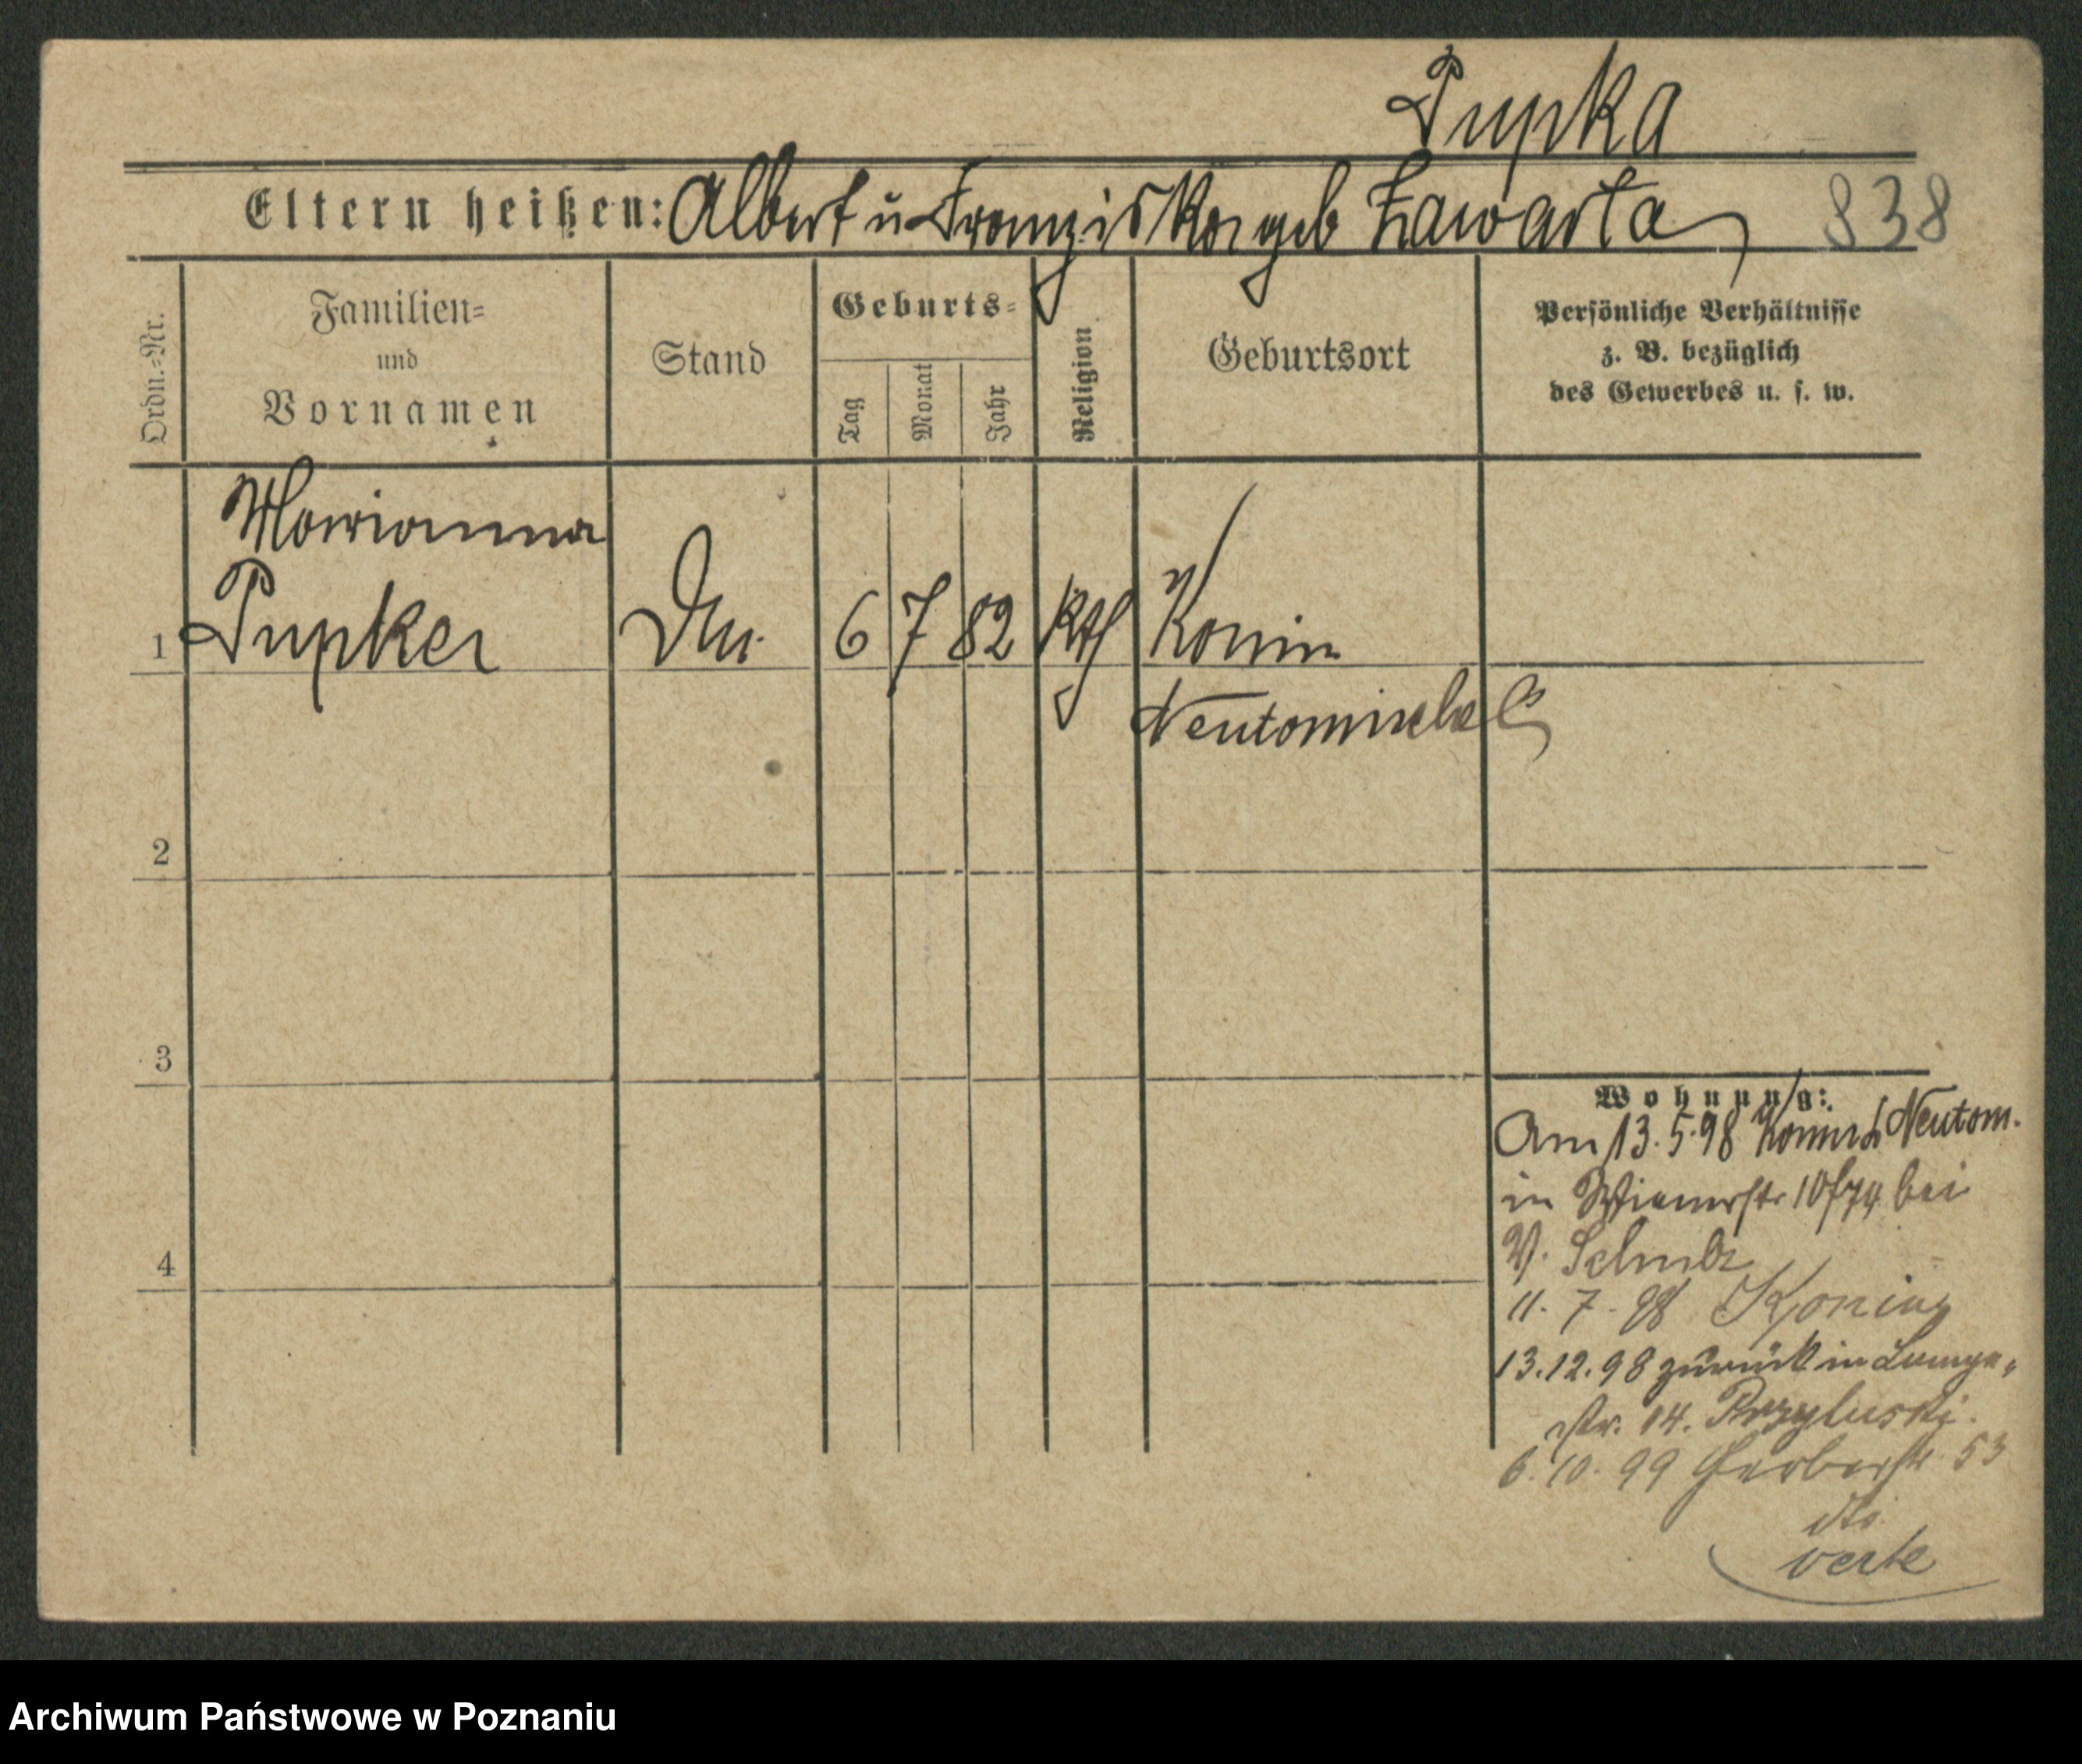 Pupka
Eltern heißen: Albert u Franziska geb Zawarta 838
Ordn.-Nr.
Familien=
und
Vornamen
Stand
Geburts=
Tag
Monat
Jahr
Religion
Geburtsort
Persönliche Verhältnisse
z. B. bezüglich
des Gewerbes u. s. w.
Marianna
1 Pupka 6 7 82 kth Konin
Neutomischel
2
3
4
Wohnung:
Am 13.5.98 Neutom.
in Wienerstr 10 bei
V. Schulz
11. 7. 98
13.12.98 zurück in
str. 14. Przyluski.
6. 10. 99 Gerberstr 53
verte
Archiwum Państwowe w Poznaniu